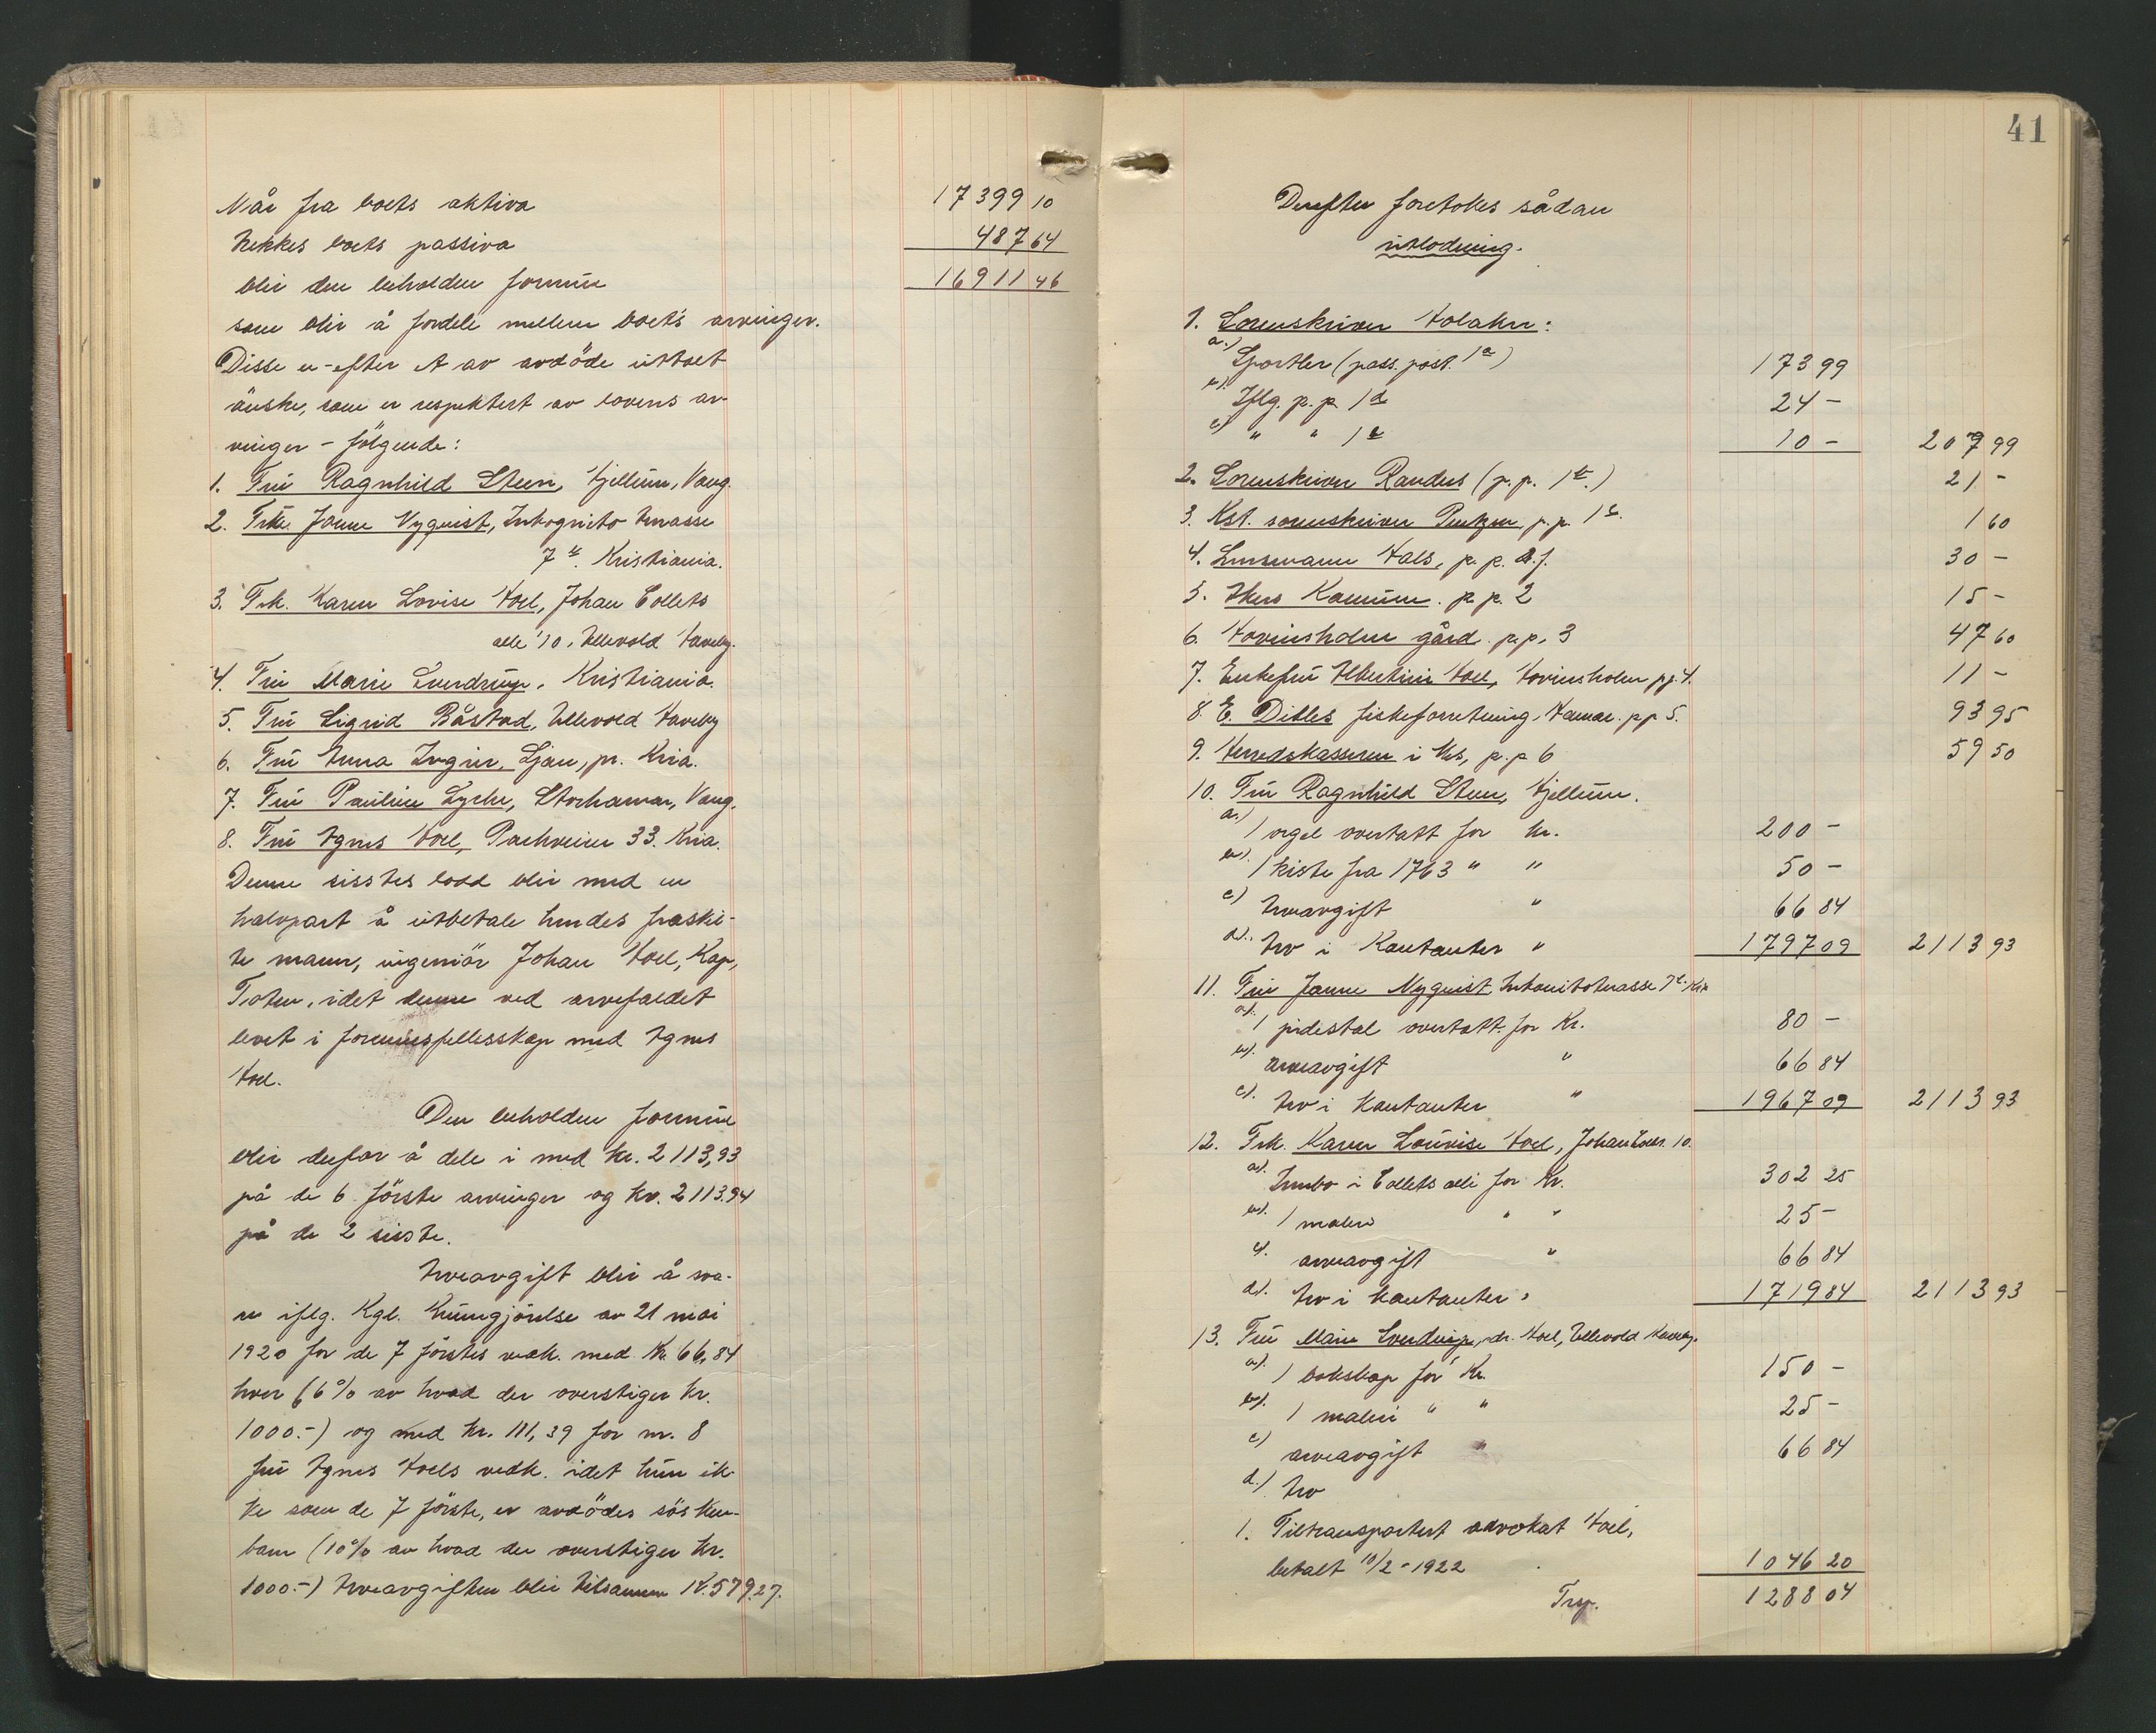 Når fra boets aktiva 17399 10
trekkes boets passiva 487 64
blir den beholden formue 16911 46
som blir å fordele mellem boets arvinger.
Disse er - efter A av avdöde uttalt
önske, som er respektert av lovens ar
vinger - fölgende:
1. Fru Ragnhild Steen, Hjellum, Vang.
2. Frk. Janne Nyquist, Inkognito terasse
7 II. Kristiania.
3. Frk. Karen Lovise Hoel, Johan Collets
alle 10, Ullevold Haveby.
4. Fru Marie Sverdrup, Kristiania.
5. Fru Sigrid Båstad, Ullevold Haveby
6. Fru Anna Ingier, Ljan, pr. Kria.
7. Fru Pauline Lyche, Storhamar, Vang.
8. Fru Agnes Hoel, Parkveien 33. Kria.
Denne sisstes lodd blir med en
halvpart å utbetale hendes fraskil-
te mann, ingeniör Johan Hoel, Kap,
Toten, idet denne ved arvefaldet
levet i formuesfellesskap med Agnes
Hoel.
Den beholden formue
blir derfor å dele i med kr. 2113,93
på de 6 förste arvinger og kr. 2113.94
på de 2 sisste.
Arveavgift blir å sva-
re iflg. Kgl. Kunngjörelse av 21 mai
1920 for de 7 förstes vedk. med Kr. 66,84
hver (6% av hvad der overstiger kr.
1000.-) og med kr. 111,39 for nr. 8
fru Agnes Hoels vedk. idet hun ik-
ke som de 7 förste, er avdödes sösken-
barn (10% av hvad der overstiger kr.
1000.-) Arveavgiften blir tilsammen K. 579.27.
41
Derefter foretokes sådan
utlodning.
1. Sorenskriver Holaker:
a.) Sportler (pass. post. 1 a) 173 99
b). Iflg. p. p. 1 d 24 -
c) " " 1 e 10 - 207 99
2. Sorenskriver Randers (p. p. 1 b.) 21 -
3. Kst. sorenskriver p. p. 1 c. 1 60
4. Lensmann Hals, p. p. 1.f. 30 -
5. Nes Kommune. p. p. 2 15 -
6. Hovinsholm gård. p. p. 3 47 60
7. Enkefru Albertine Hoel, Hovinsholm pp. 4. 11 -
8. E. Dibles fiskeforretning, Hamar. pp 5. 93 95
9. Herredskasseren i Nes, p. p 6 59 50
10. Fru Ragnhild Steen, Hjellum.
a.) 1 orgel overtatt for kr. 200 -
b). 1 kiste fra 1763 " " 50 -
c) Arveavgift " 66 84
d). Arv i Kontanter " 1797 09 2113 93
11. Fru Janne Nyquist, Inkonitoterasse 7 II. Kria
a). 1 pidestal overtatt for Kr. 80 -
b). arveavgift " 66 84
c). Arv i Kontanter " 1967 09 2113 93
12. Frk. Karen Louvise Hoel, Johan Coll. 10.
a). Innbo i Collets alle for Kr. 302 25
b). 1 maleri " " 25 -
c). arveavgift " 66 84
d). Arv i kontanter " 1719 84 2113 93
13. Fru Marie Sverdrup, Hoel, Ullevold Haveby.
a). 1 bokskap for Kr. 150 -
b). 1 maleri " " 25 -
c) arveavgift " 66 84
d.) Arv
1. Tiltransportert advokat Hoel,
betalt 10/2-1922 1046 20
Trsp. 1288 04